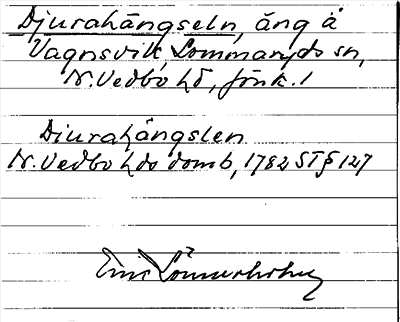 Djurahängseln, äng å
Vagnsvik, Lommaryds sn,
N. Vedbo hd, Jönk. l
Djurahängslen
N. Vedbo hds domb, 1782 ST § 127